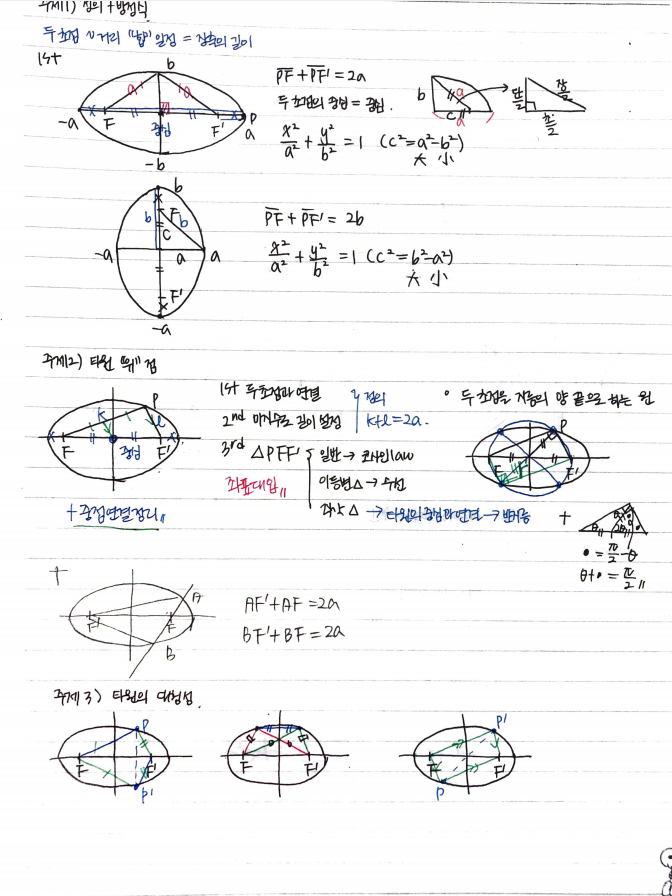 주제1) 정의 + 방정식
두 초점 거리 "합" 일정 = 장축의 길이
1st
b
a a
-a F 중심 F' P a
-b
PF + PF' = 2a
두 초점의 중심 = 중심.
x²/a² + y²/b² = 1 (c² = a² - b²)
大 小
b a c a
단/2 장/2 초/2
b
F
b b
c
-a a a
F'
-a
PF + PF' = 2b
x²/a² + y²/b² = 1 (c² = b² - a²)
大 小
주제2) 타원 "위" 점
P
k l
F 중심 F'
+ 중점연결정리 〃
1st 두 초점과 연결
2nd 미지수로 길이 설정
정의
k + l = 2a.
3rd △PFF'
일반 → 코사인 law
이등변△ → 수선
직각△ → 타원의 중심과 연결 → 반지름
좌표대입 〃
두 초점을 지름의 양 끝으로 하는 원
P
F F'
+
• = π/2 - θ
θ + • = π/2 〃
+
A
F' F
B
AF' + AF = 2a
BF' + BF = 2a
주제3) 타원의 대칭성.
P
F F'
P'
F F'
P'
F F'
P